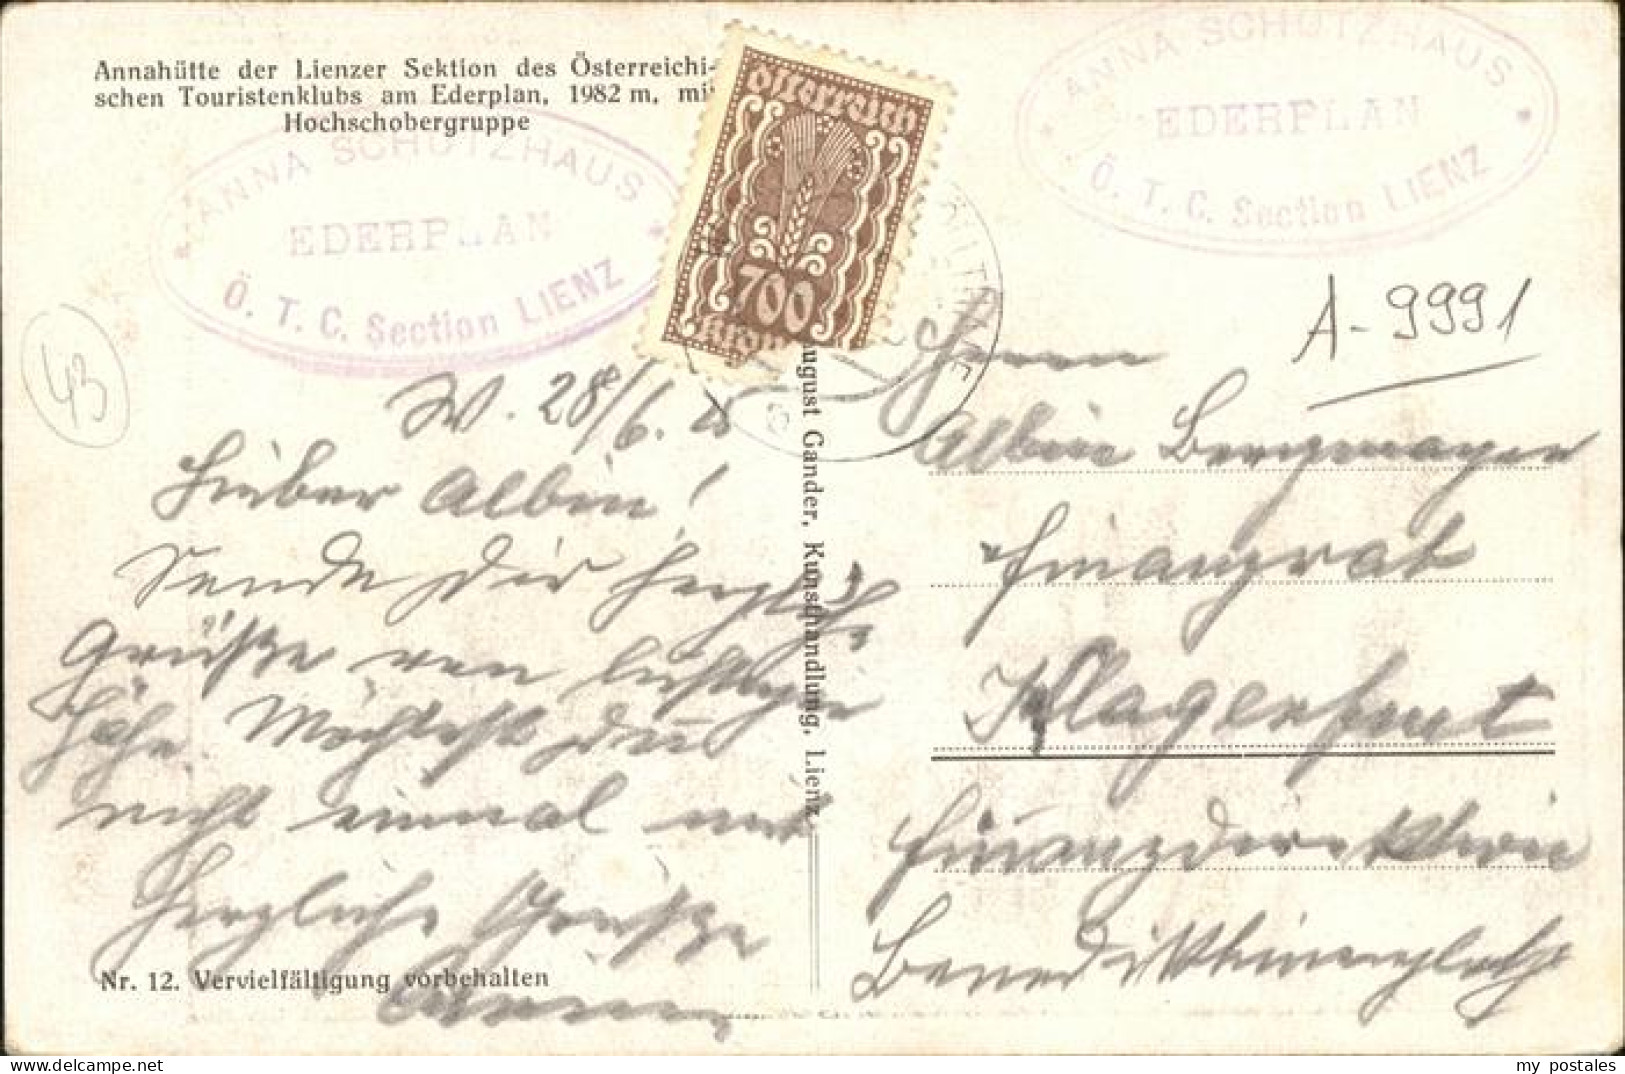 Annahütte der Lienzer Sektion des Österreichi-
schen Touristenklubs am Ederplan, 1982 m, mit
Hochschobergruppe
ANNA SCHUTZHAUS
EDERPLAN
Ö. T. C. Section LIENZ
Österreich
700
ANNA SCHUTZHAUS
EDERPLAN
Ö. T. C. Section LIENZ
A-9991
43
W. 28/6. 25
Lieber Albin!
Sende Dir herzliche
Grüße von luftiger
Höhe. Möchtest Du
nicht einmal mit
Herzliche Grüße
Nr. 12. Vervielfältigung vorbehalten
August Gander, Kunsthandlung, Lienz
Herrn
Albin Bergmayer
Finanzrat
Klagenfurt
Finanzdirektion
Benediktinerplatz
my postales